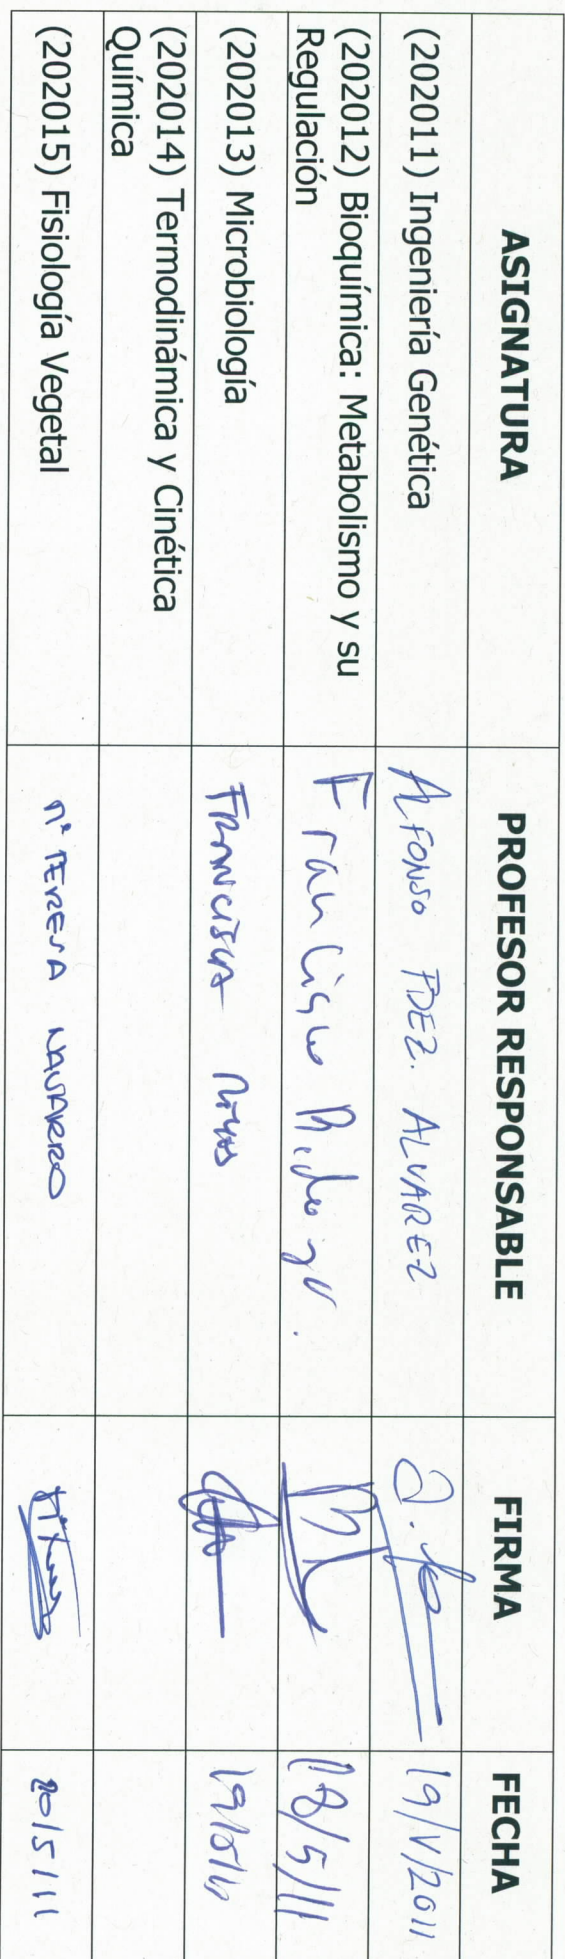 ASIGNATURA PROFESOR RESPONSABLE FIRMA FECHA
(202011) Ingeniería Genética ALFONSO FDEZ. ALVAREZ 19/V/2011
(202012) Bioquímica: Metabolismo y su
Regulación Francisco 18/5/11
(202013) Microbiología FRANCISCA
(202014) Termodinámica y Cinética
Química
(202015) Fisiología Vegetal Mª TERESA NAVARRO 20/5/11